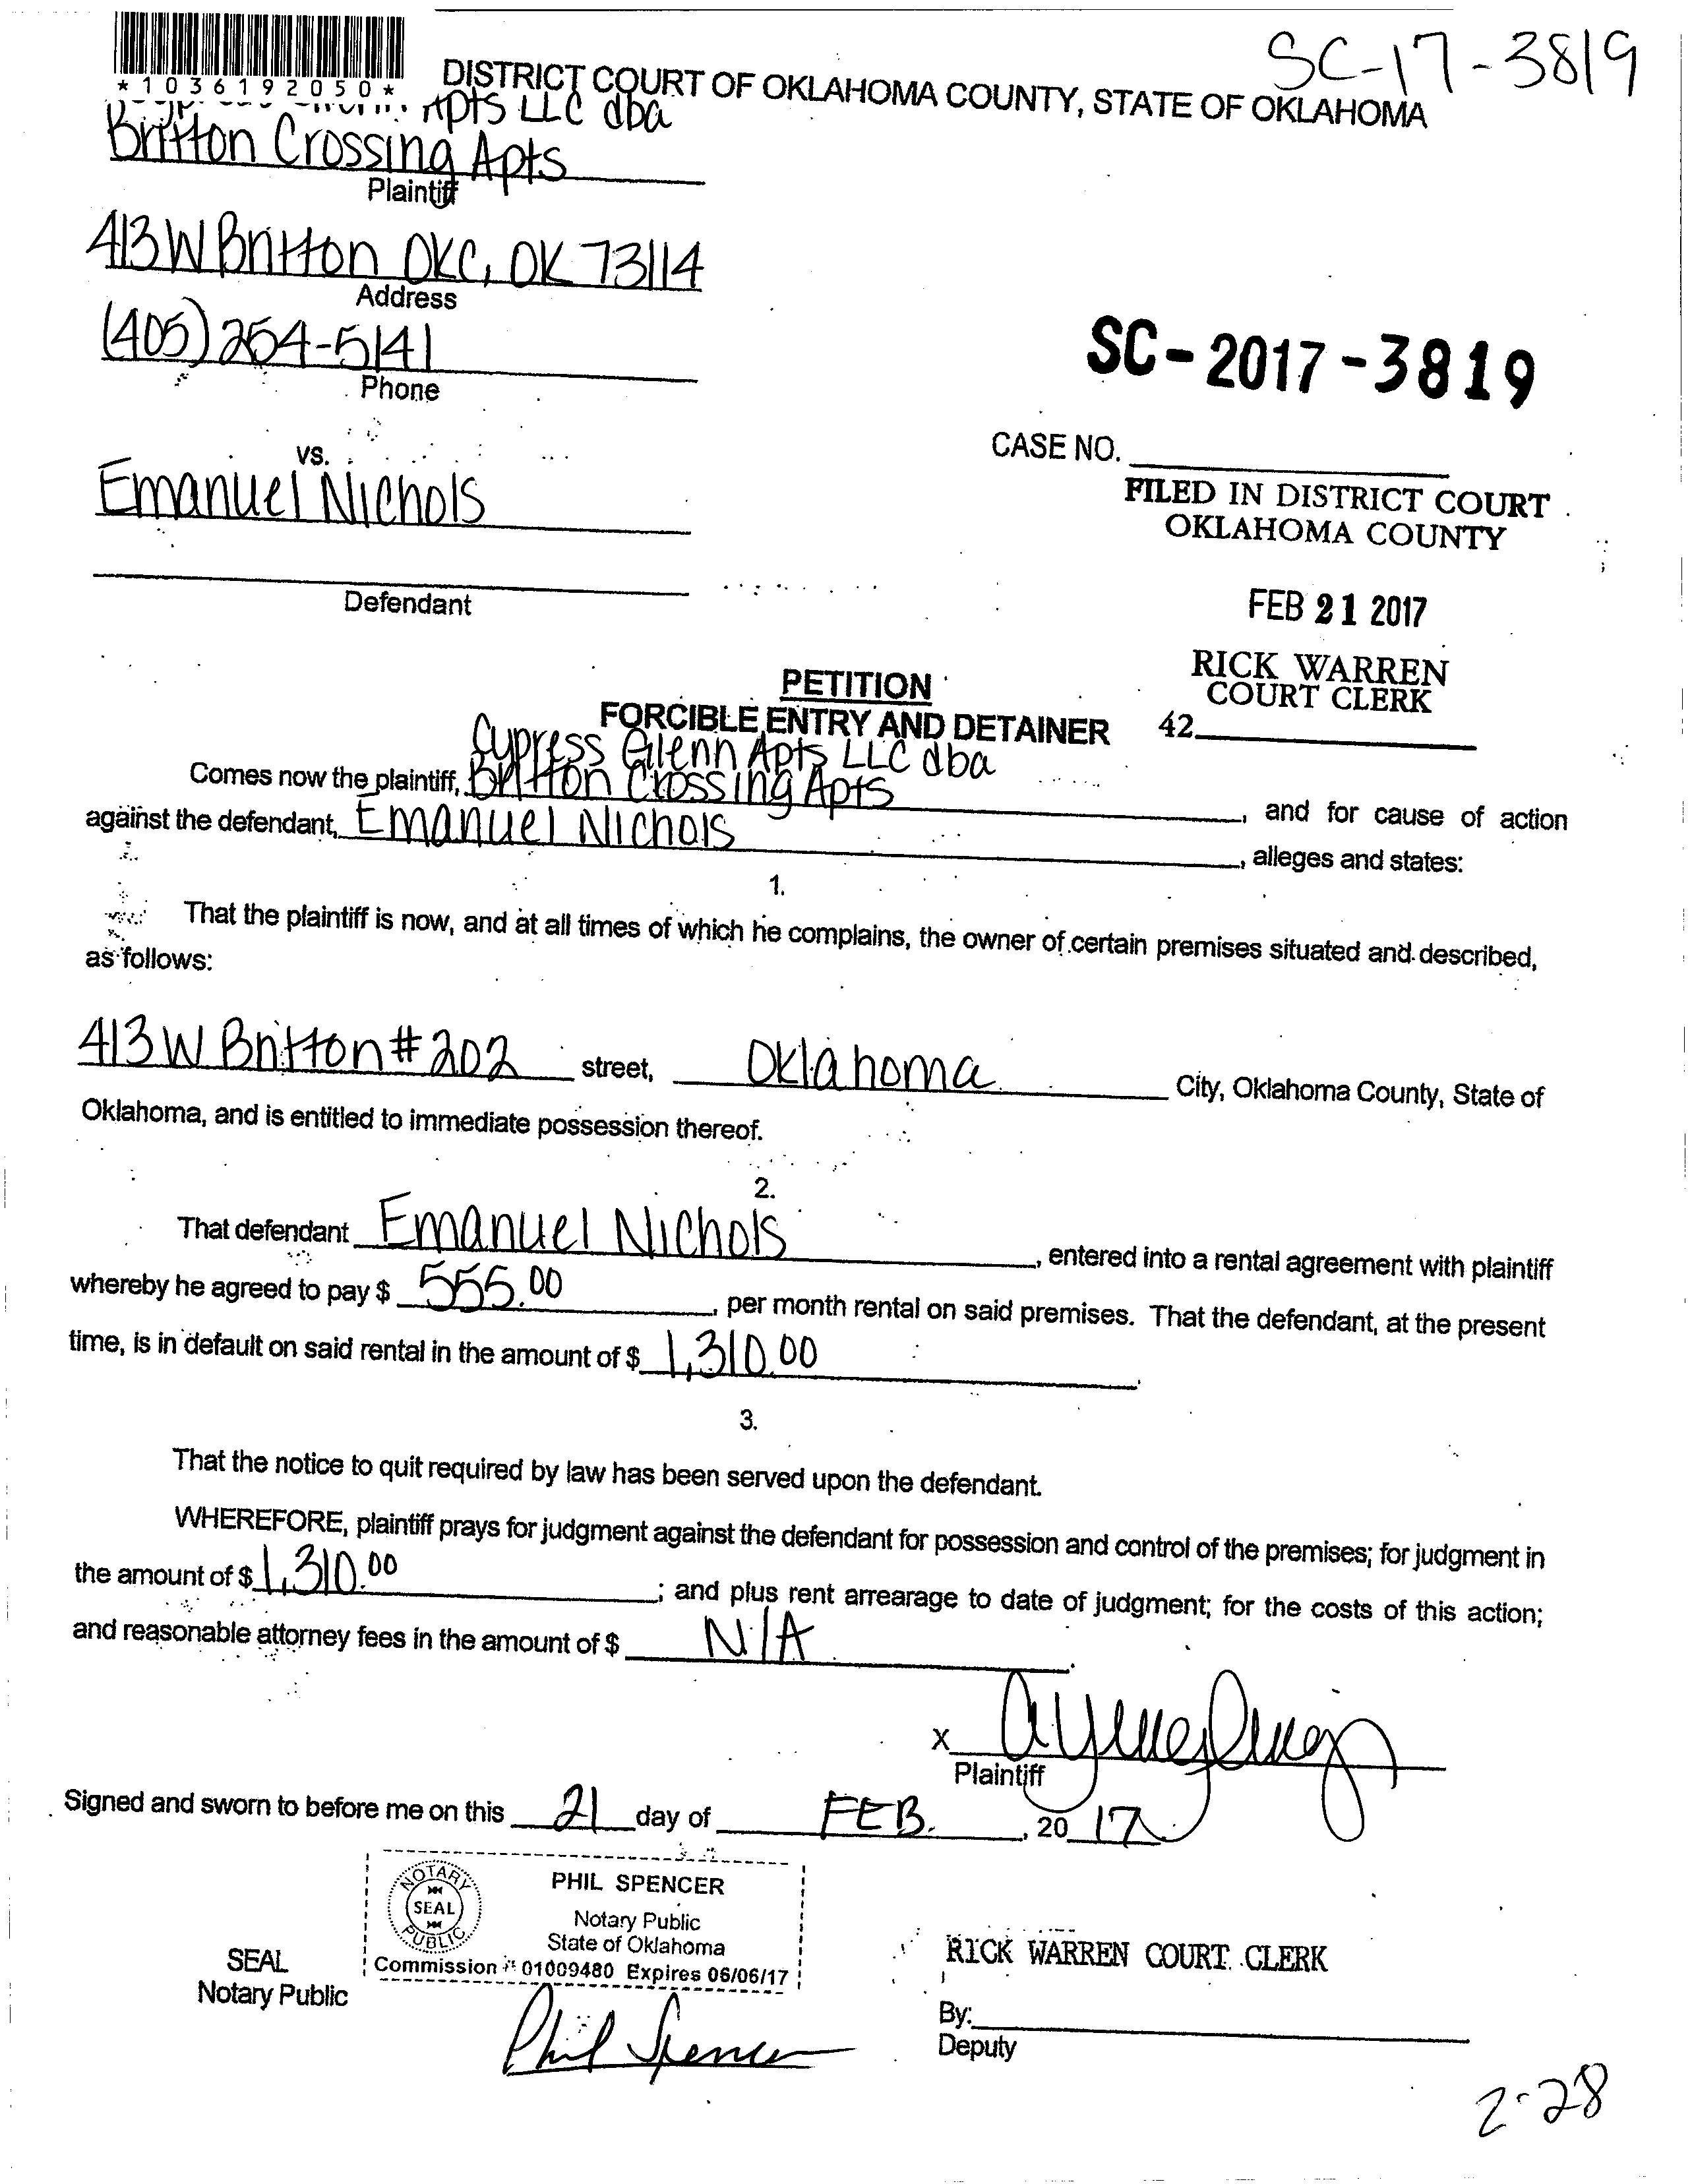 SC-17-3819
*1036192050*
DISTRICT COURT OF OKLAHOMA COUNTY, STATE OF OKLAHOMA
Apts LLC dba
Britton Crossing Apts
Plaintiff
413 W Britton OKC, OK 73114
Address
(405) 254-5141
Phone
SC-2017-3819
vs.
CASE NO.
Emanuel Nichols
FILED IN DISTRICT COURT
OKLAHOMA COUNTY
Defendant
FEB 21 2017
RICK WARREN
COURT CLERK
42
PETITION
FORCIBLE ENTRY AND DETAINER
Cypress Glenn Apts LLC dba
Comes now the plaintiff, Britton Crossing Apts, and for cause of action
against the defendant, Emanuel Nichols, alleges and states:
1.
That the plaintiff is now, and at all times of which he complains, the owner of certain premises situated and described,
as follows:
413 W Britton #202 street, Oklahoma City, Oklahoma County, State of
Oklahoma, and is entitled to immediate possession thereof.
2.
That defendant Emanuel Nichols, entered into a rental agreement with plaintiff
whereby he agreed to pay $ 555.00, per month rental on said premises. That the defendant, at the present
time, is in default on said rental in the amount of $ 1,310.00.
3.
That the notice to quit required by law has been served upon the defendant.
WHEREFORE, plaintiff prays for judgment against the defendant for possession and control of the premises; for judgment in
the amount of $ 1,310.00; and plus rent arrearage to date of judgment; for the costs of this action;
and reasonable attorney fees in the amount of $ N/A.
X
Plaintiff
Signed and sworn to before me on this 21 day of FEB., 2017.
NOTARY PUBLIC
SEAL
PHIL SPENCER
Notary Public
State of Oklahoma
Commission # 01009480 Expires 06/06/17
SEAL
Notary Public
Phil Spencer
RICK WARREN COURT CLERK
By:
Deputy
2-28